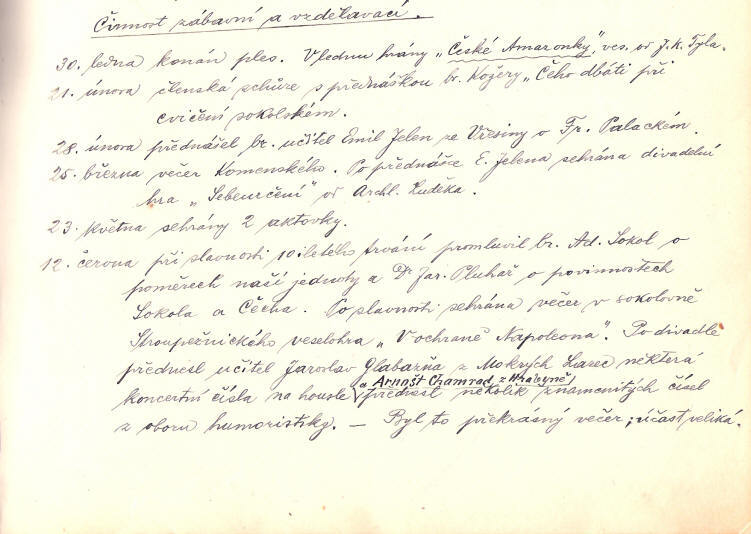 Činnost zábavní a vzdělávací.
30. ledna konán ples. V lednu hrány „České Amazonky", ves. od J. K. Tyla.
21. února členská schůze s přednáškou br. Kožery „Čeho dbáti při
cvičení sokolském.
28. února přednášel br. učitel Emil Jelen ze Vřesiny o Fr. Palackém.
25. března večer Komenského. Po přednášce E. Jelena sehrána divadelní
hra „Sebeurčení" od Archl. Luďka.
23. května sehrány 2 aktovky.
12. června při slavnosti 10 letého trvání promluvil br. Ad. Sokol o
poměrech naší jednoty a Dr Jar. Pluhař o povinnostech
Sokola a Čecha. Po slavnosti sehrána večer v sokolovně
Stroupežnického veselohra „V ochraně Napoleona". Po divadle
přednesl učitel Jaroslav Glabazňa z Mokrých Lazec některá
a Arnošt Chamrad z Hrabyně
koncertní čísla na housle přednesl několik znamenitých čísel
z oboru humoristiky. — Byl to překrásný večer; účast veliká.